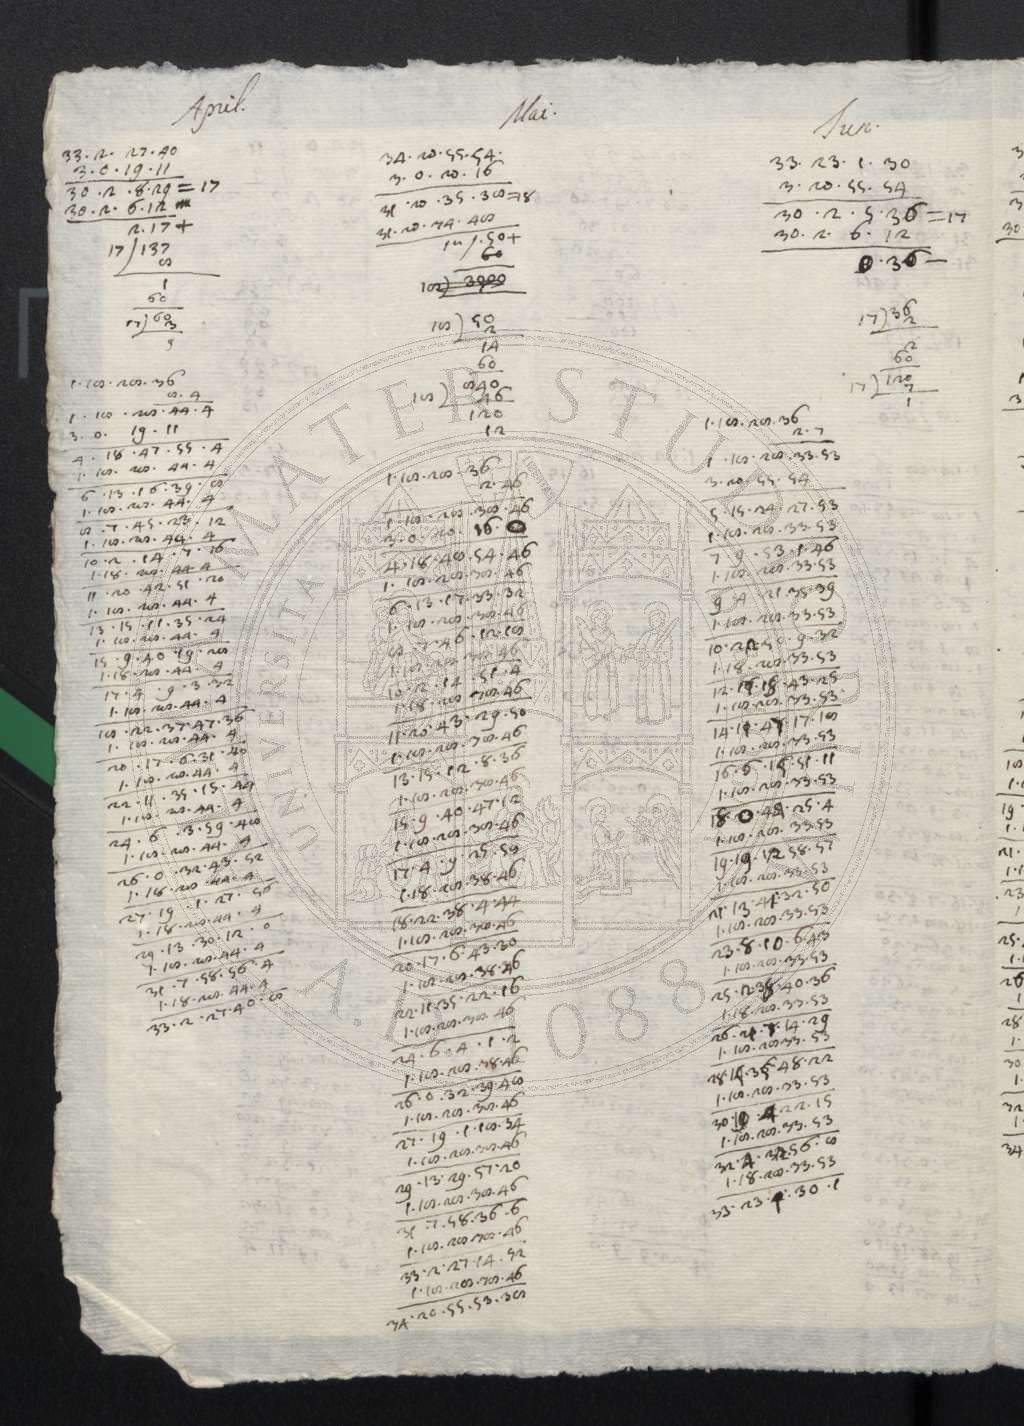 April.
33.2.27.40
3.0.19.11
30.2.8.29=17
30.2.6.12
2.17+
17)137
8
1
60
17)60
3
9
1.18.28.36
8.4
1.18.28.44.4
3.0.19.11
4.18.47.55.4
1.18.28.44.4
6.13.16.39.8
1.18.28.44.4
8.7.45.23.12
1.18.28.44.4
10.2.14.7.16
1.18.28.44.4
11.20.42.51.20
1.18.28.44.4
13.15.11.35.24
1.18.28.44.4
15.9.40.19.28
1.18.28.44.4
17.4.9.3.32
1.18.28.44.4
18.22.37.47.36
1.18.28.44.4
20.17.6.31.40
1.18.28.44.4
22.11.35.15.44
1.18.28.44.4
24.6.3.59.48
1.18.28.44.4
26.0.32.43.52
1.18.28.44.4
27.19.1.27.56
1.18.28.44.4
29.13.30.12.0
1.18.28.44.4
31.7.58.56.4
1.18.28.44.4
33.2.27.40.8
Mai.
34.20.55.54.
3.0.20.16
31.20.35.38=18
31.20.34.48
50+
60
18)3000
18)50
2
14
60
18)840
46
120
12
1.18.28.36
2.46
1.18.28.38.46
3.0.20.16.0
4.18.48.54.46
1.18.28.38.46
6.13.17.33.32
1.18.28.38.46
8.7.46.12.18
1.18.28.38.46
10.2.14.51.4
1.18.28.38.46
11.20.43.29.50
1.18.28.38.46
13.15.12.8.36
1.18.28.38.46
15.9.40.47.12
1.18.28.38.46
17.4.9.25.58
1.18.28.38.46
18.22.38.4.44
1.18.28.38.46
20.17.6.43.30
1.18.28.38.46
22.11.35.22.16
1.18.28.38.46
24.6.4.1.2
1.18.28.38.46
26.0.32.39.48
1.18.28.38.46
27.19.1.18.34
1.18.28.38.46
29.13.29.57.20
1.18.28.38.46
31.7.58.36.6
1.18.28.38.46
33.2.27.14.52
1.18.28.38.46
34.20.55.53.38
Jun.
33.23.1.30
3.20.55.54
30.2.5.36=17
30.2.6.12
0.36-
17)36
2
2
60
17)120
7
1
1.18.28.36
2.7
1.18.28.33.53
3.20.55.54
5.15.24.27.53
1.18.28.33.53
7.9.53.1.46
1.18.28.33.53
9.4.21.35.39
1.18.28.33.53
10.22.50.9.32
1.18.28.33.53
12.17.18.43.25
1.18.28.33.53
14.11.47.17.18
1.18.28.33.53
16.6.15.51.11
1.18.28.33.53
18.0.44.25.4
1.18.28.33.53
19.19.12.58.57
1.18.28.33.53
21.13.41.32.50
1.18.28.33.53
23.8.10.6.43
1.18.28.33.53
25.2.38.40.36
1.18.28.33.53
26.21.7.14.29
1.18.28.33.53
28.15.35.48.22
1.18.28.33.53
30.10.4.22.15
1.18.28.33.53
32.4.32.56.8
1.18.28.33.53
33.23.1.30.1
ALMA MATER STUDIORUM
UNIVERSITÀ
A.D. 1088